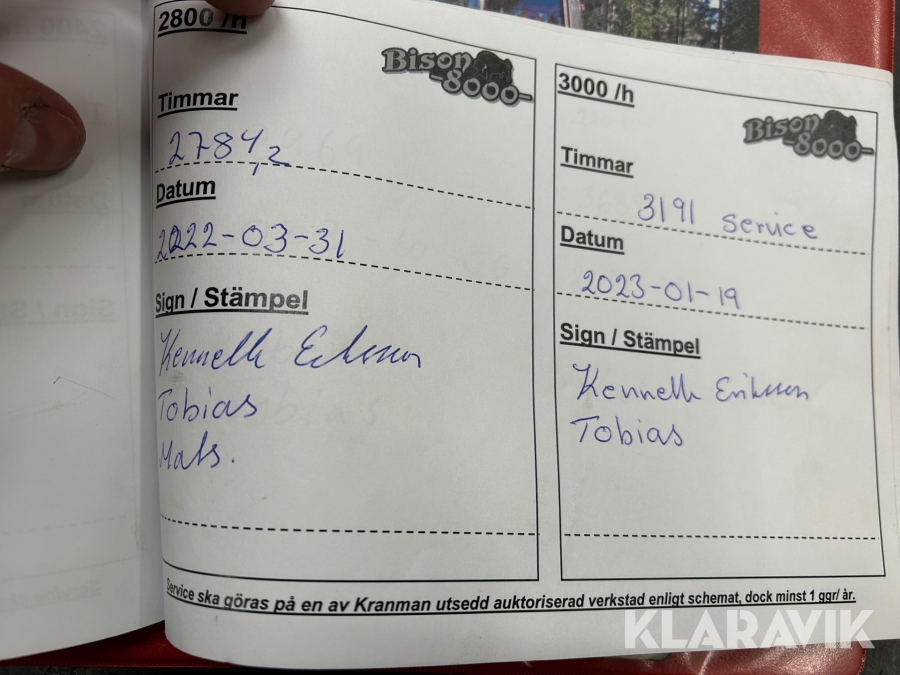 2800 /h
Bison
-8000-
Timmar
2784,2
Datum
2022-03-31
Sign / Stämpel
Kenneth Eriksson
Tobias
Mats.
3000 /h
Bison
-8000-
Timmar
3191 service
Datum
2023-01-19
Sign / Stämpel
Kenneth Eriksson
Tobias
Service ska göras på en av Kranman utsedd auktoriserad verkstad enligt schemat, dock minst 1 ggr/ år.
KLARAVIK